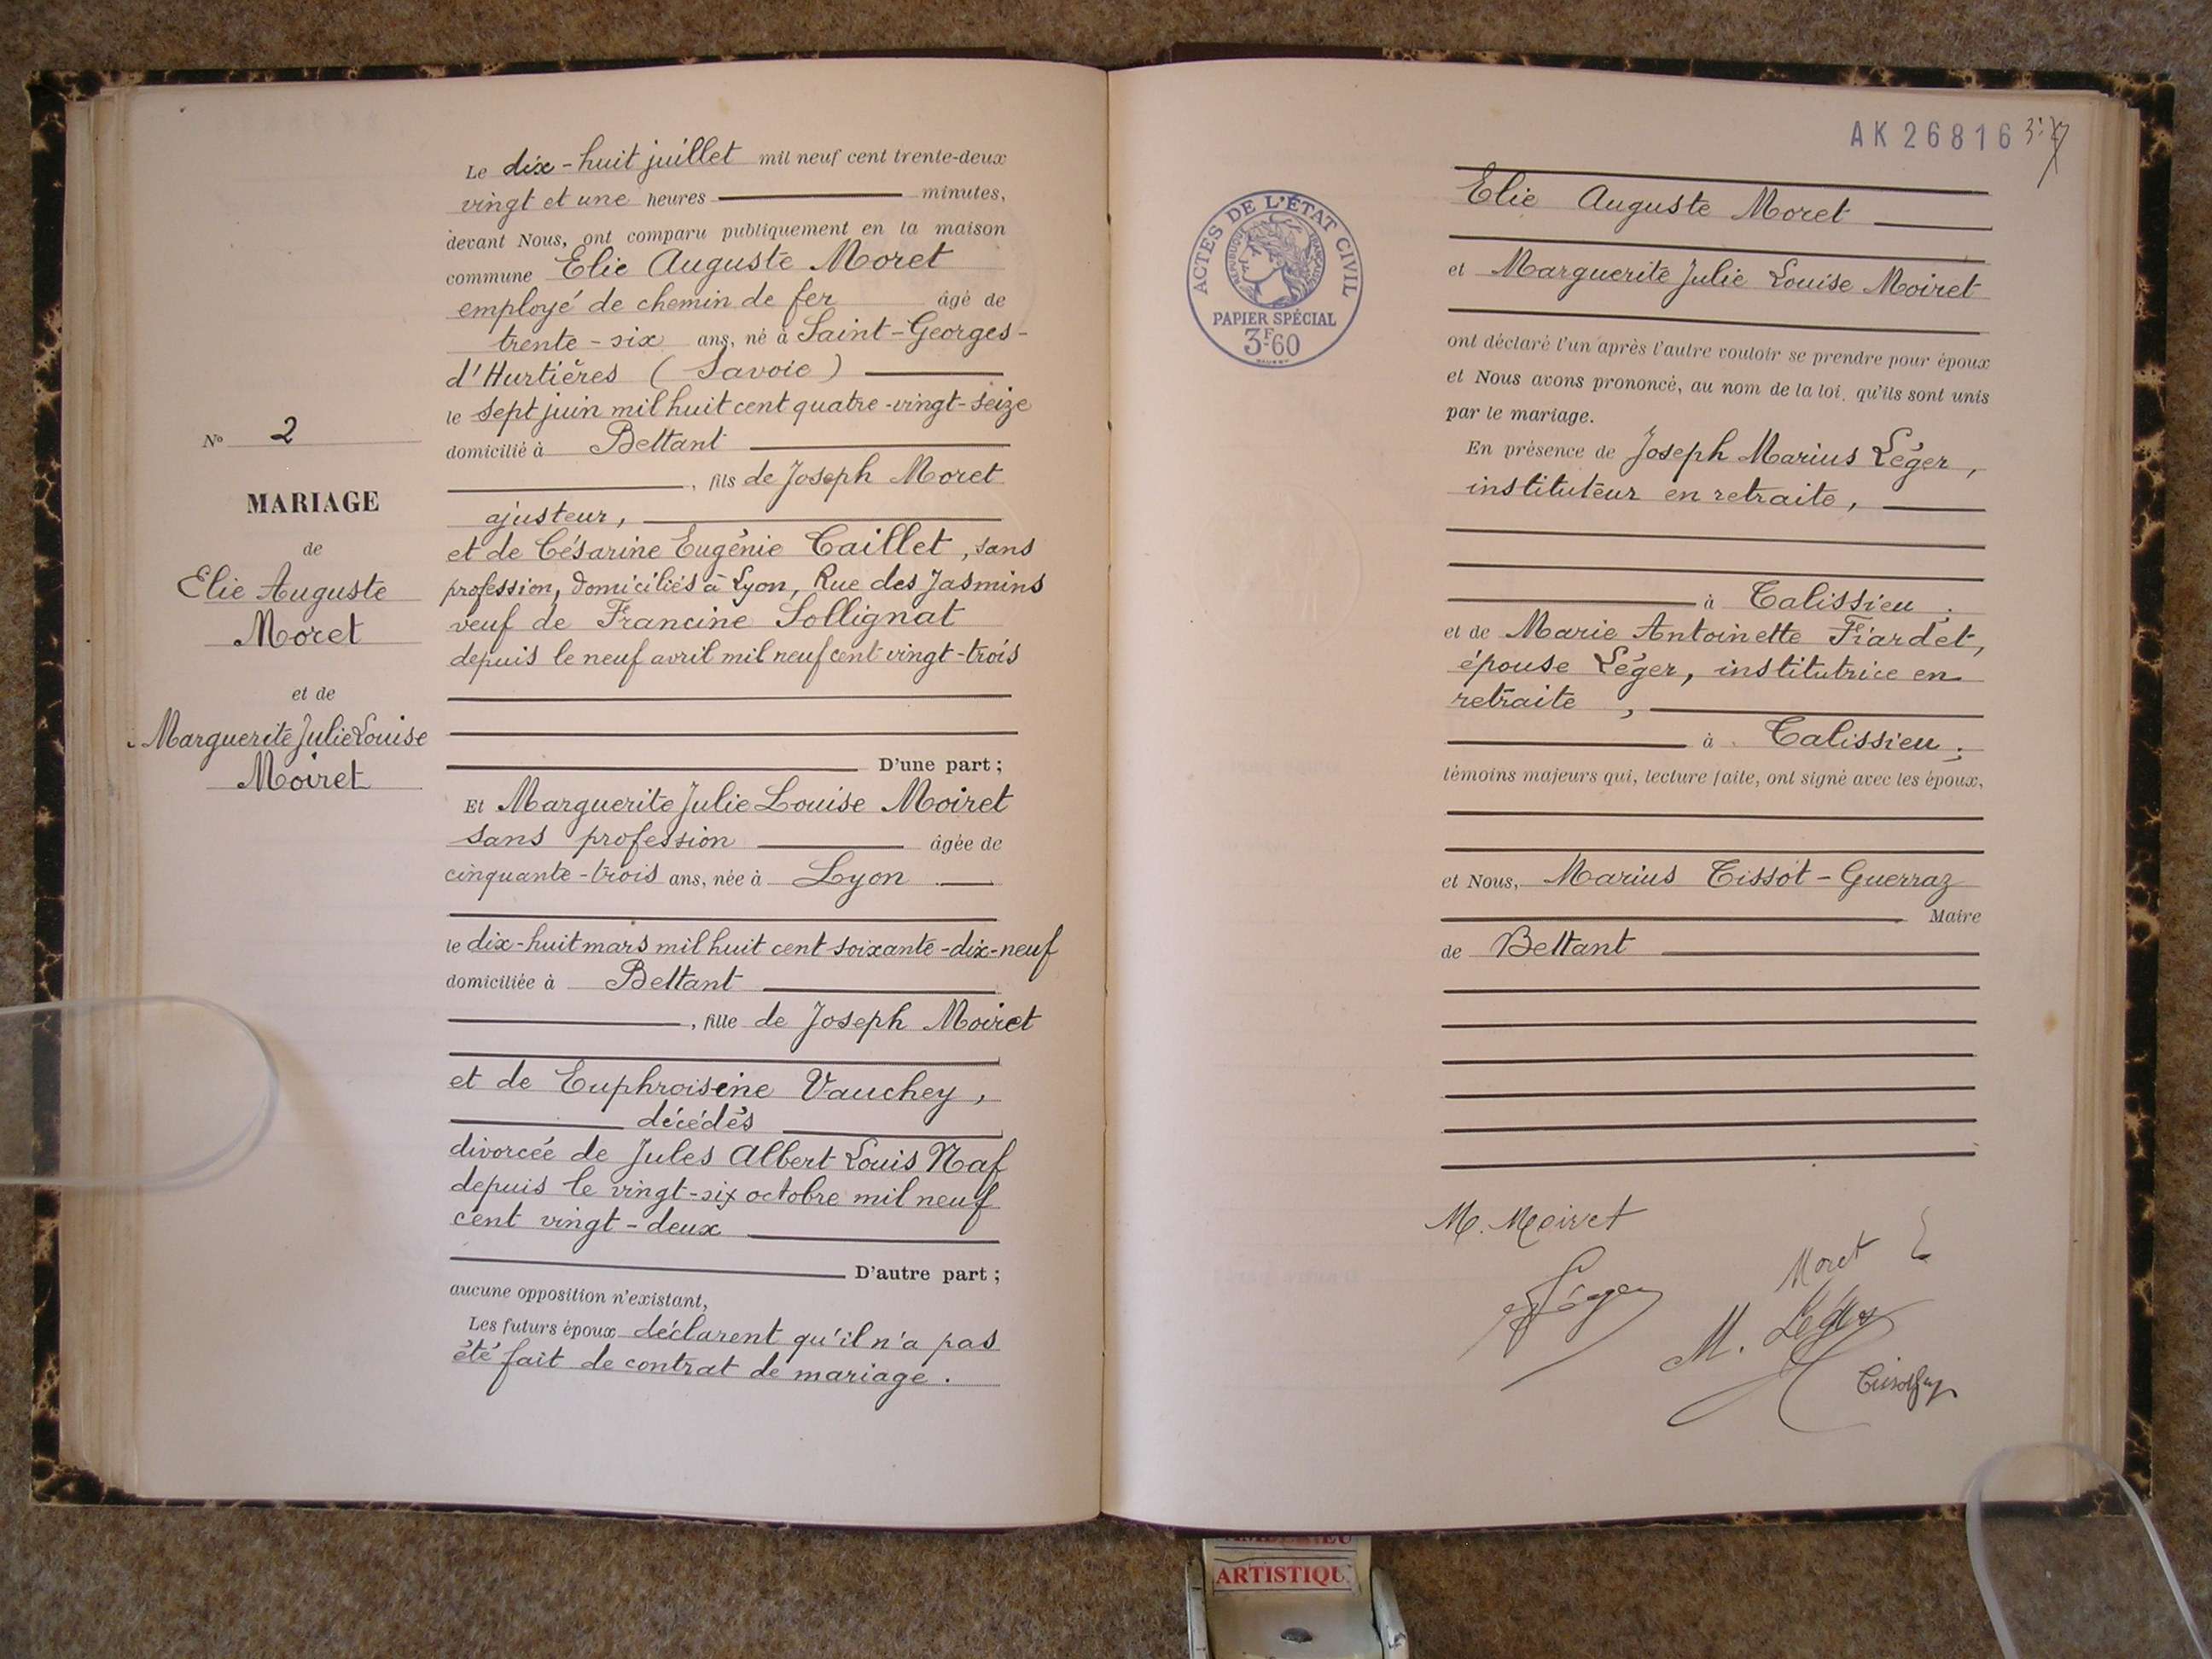 Le dix-huit juillet mil neuf cent trente-deux
vingt et une heures minutes,
devant Nous, ont comparu publiquement en la maison
commune Elie Auguste Moret
employé de chemin de fer âgé de
trente-six ans, né à Saint-Georges-
d'Hurtières (Savoie)
le sept juin mil huit cent quatre-vingt-seize
domicilié à Bettant
, fils de Joseph Moret
ajusteur,
et de Césarine Eugénie Caillet, sans
profession, domiciliés à Lyon, Rue des Jasmins
veuf de Francine Sollignat
depuis le neuf avril mil neuf cent vingt-trois
D'une part;
Et Marguerite Julie Louise Moiret
sans profession âgée de
cinquante-trois ans, née à Lyon
le dix-huit mars mil huit cent soixante-dix-neuf
domiciliée à Bettant
, fille de Joseph Moiret
et de Euphroisine Vauchey,
décédés
divorcée de Jules Albert Louis Naf
depuis le vingt-six octobre mil neuf
cent vingt-deux
D'autre part;
aucune opposition n'existant,
Les futurs époux déclarent qu'il n'a pas
été fait de contrat de mariage.
N° 2
MARIAGE
de
Elie Auguste
Moret
et de
Marguerite Julie Louise
Moiret
AK 26816
ACTES DE L'ÉTAT CIVIL
RÉPUBLIQUE FRANÇAISE
PAPIER SPÉCIAL
3F60
Elie Auguste Moret
et Marguerite Julie Louise Moiret
ont déclaré l'un après l'autre vouloir se prendre pour époux
et Nous avons prononcé, au nom de la loi, qu'ils sont unis
par le mariage.
En présence de Joseph Marius Léger,
instituteur en retraite,
à Talissieu;
et de Marie Antoinette Fiardet,
épouse Léger, institutrice en
retraite,
à Talissieu;
témoins majeurs qui, lecture faite, ont signé avec les époux,
et Nous, Marius Tissot-Guerraz
Maire
de Bettant
M. Moiret
Moret E
Léger
M. Léger
ARTISTIQU